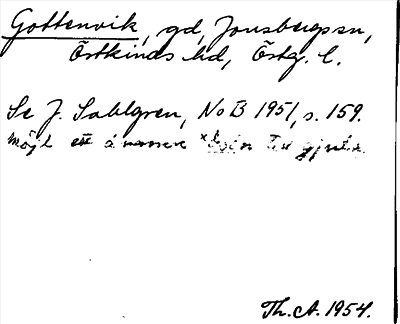 Gottenvik, gd, Jonsbergs sn,
Östkinds hd, Östg. l.
Se J. Sahlgren, NoB 1951, s. 159.
möjl ett
Th. A. 1954.